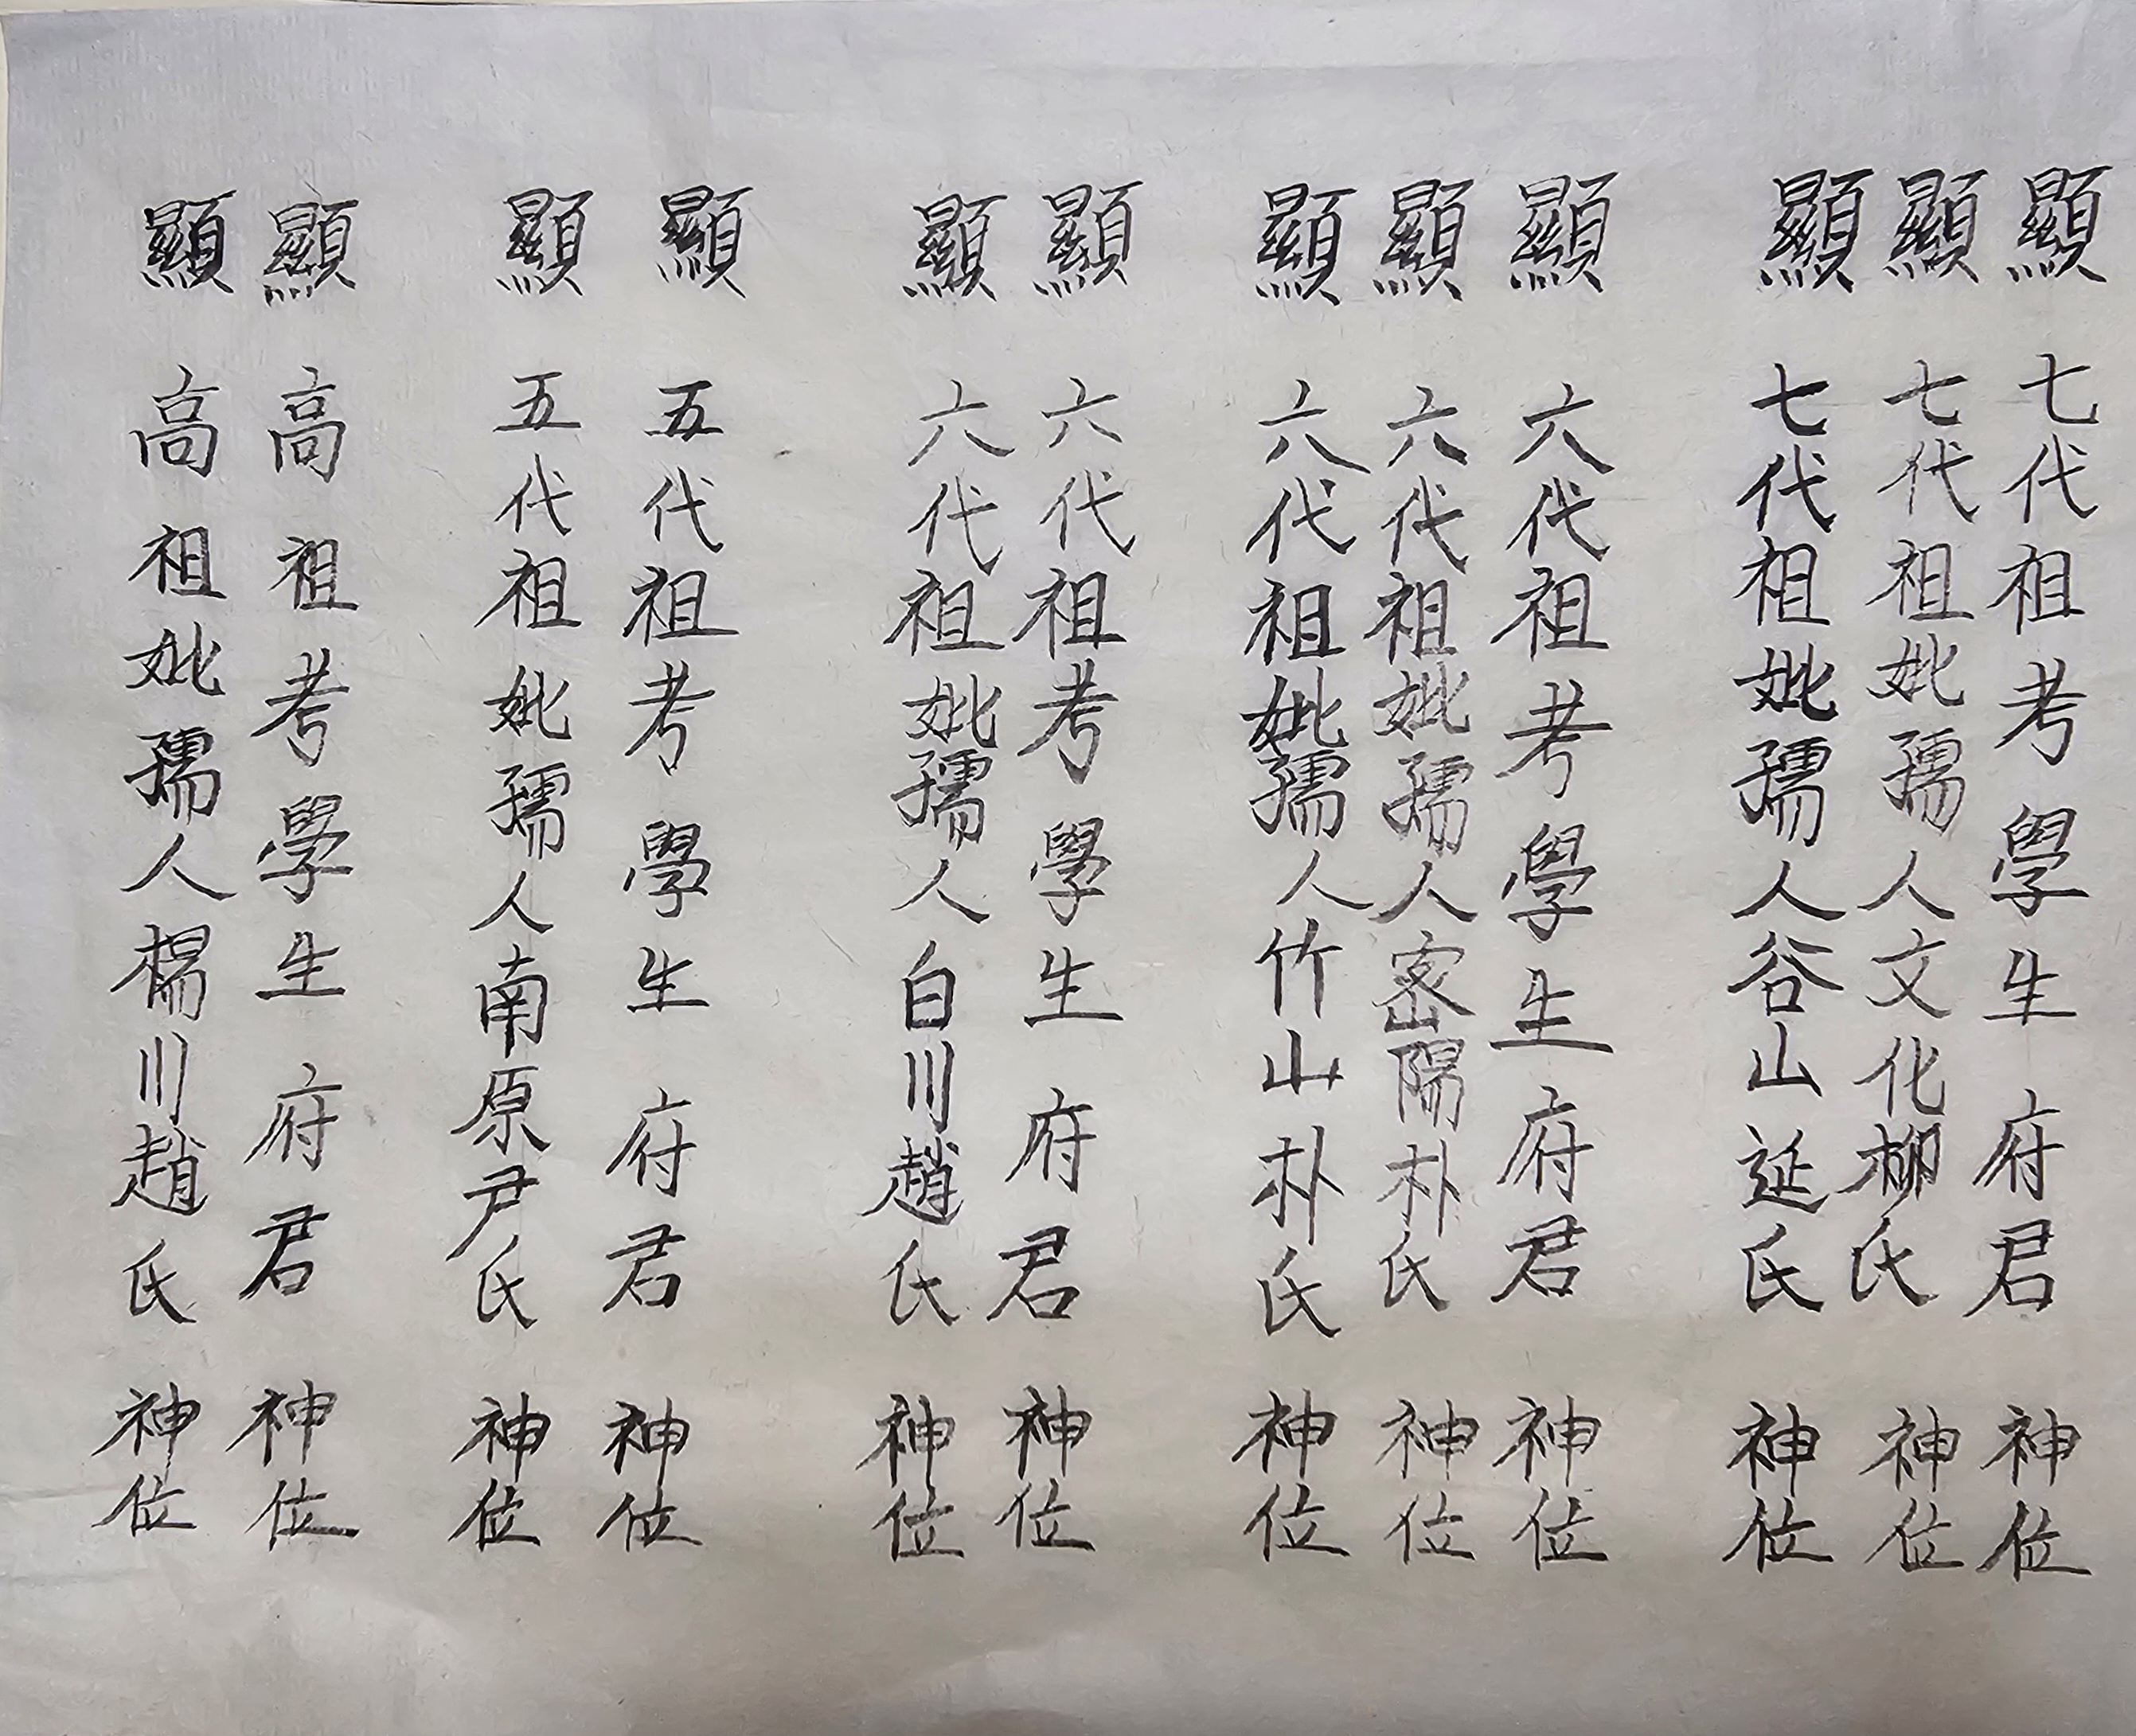 顯 七代祖考學生府君 神位
顯 七代祖妣孺人文化柳氏 神位
顯 七代祖妣孺人谷山延氏 神位
顯 六代祖考學生府君 神位
顯 六代祖妣孺人密陽朴氏 神位
顯 六代祖妣孺人竹山朴氏 神位
顯 六代祖考學生府君 神位
顯 六代祖妣孺人白川趙氏 神位
顯 五代祖考學生府君 神位
顯 五代祖妣孺人南原尹氏 神位
顯 高祖考學生府君 神位
顯 高祖妣孺人楊川趙氏 神位